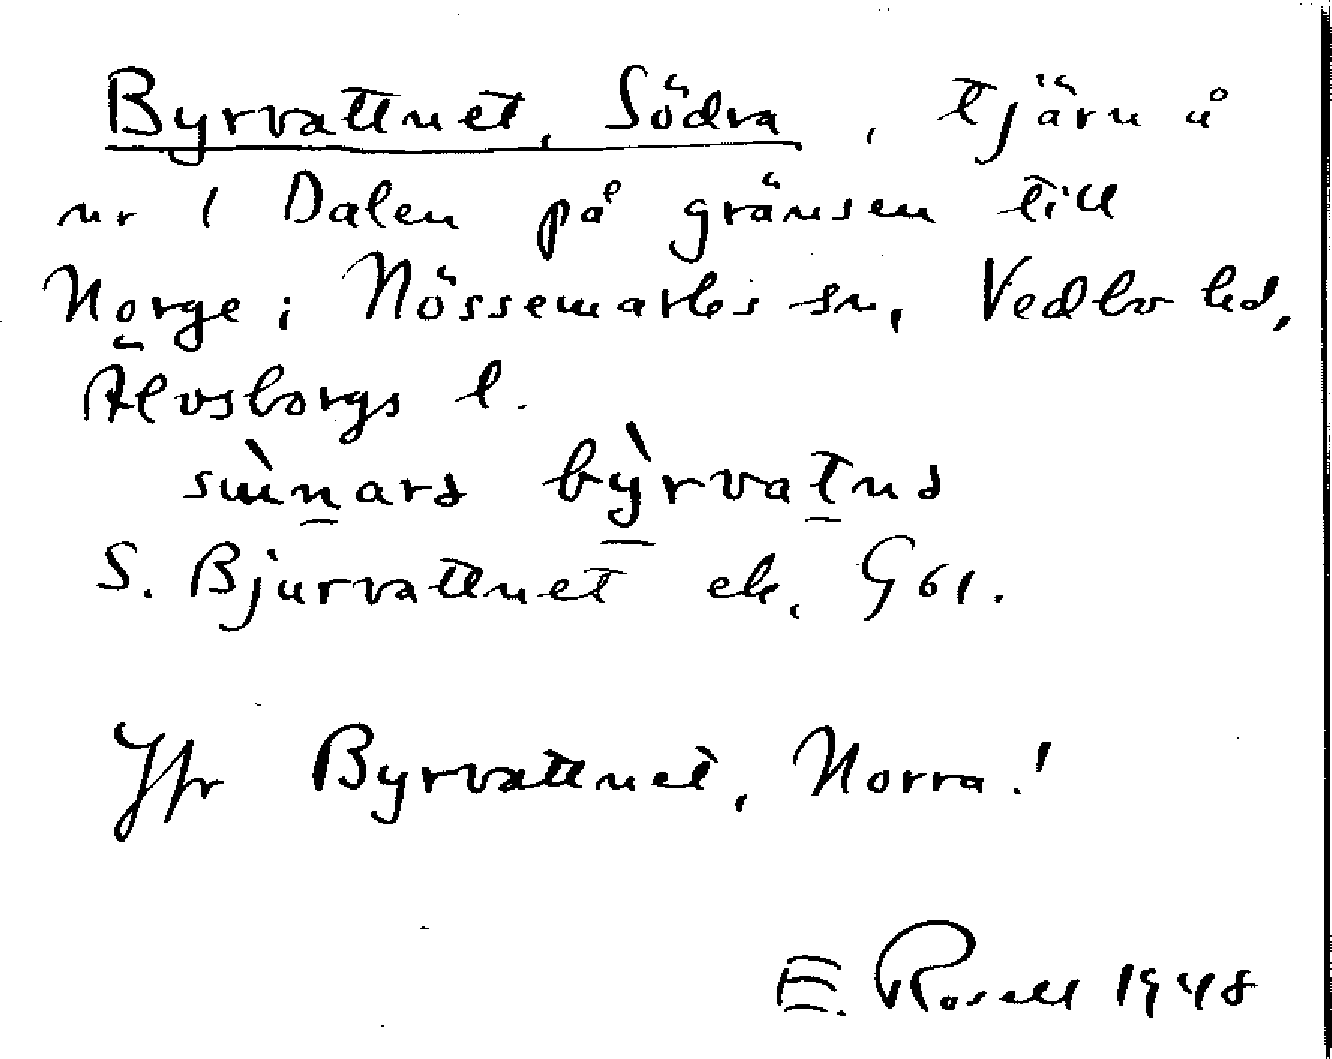 Byrvattnet, Södra, tjärn å
nr 1 Dalen på gränsen till
Norge i Nössemarks sn, Vedbo hd,
Älvsborgs l.
byrvatnə
S. Bjurvattnet ek. G61.
Jfr Byrvattnet, Norra!
E. Rosell 1948